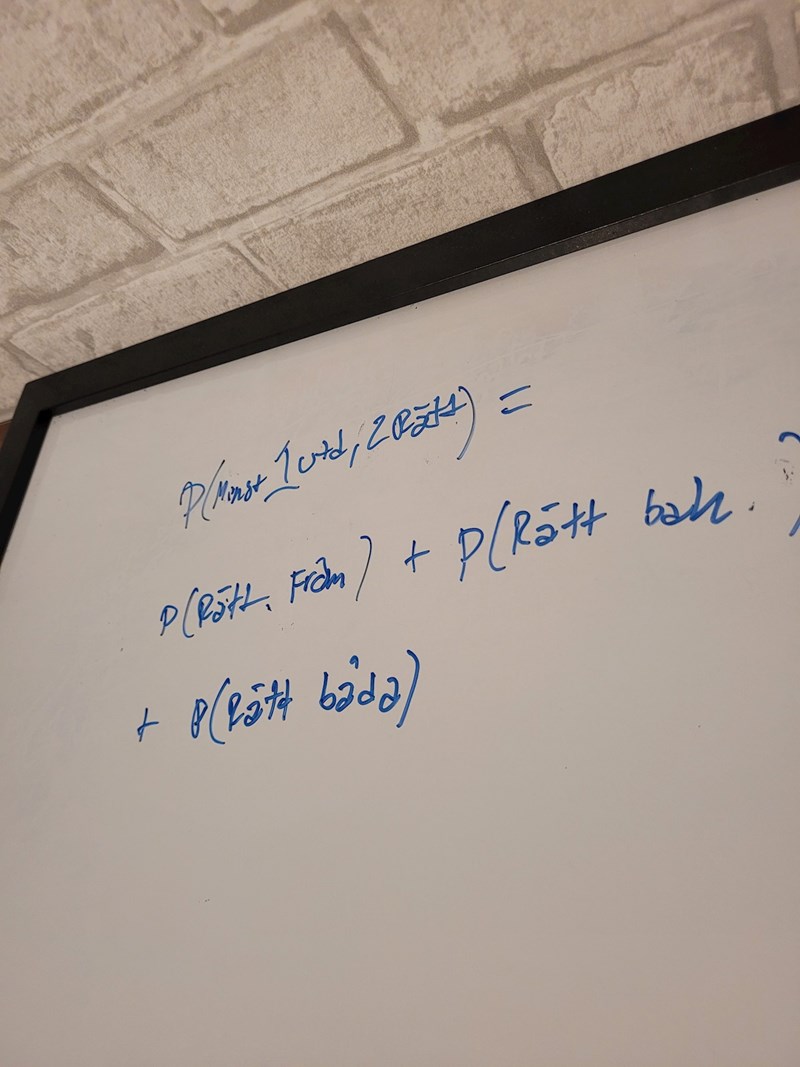 P(Minst 1 utd, 2 Rätt) =
P(Rätt. Fram) + P(Rätt bak. )
+ P(Rätt båda)